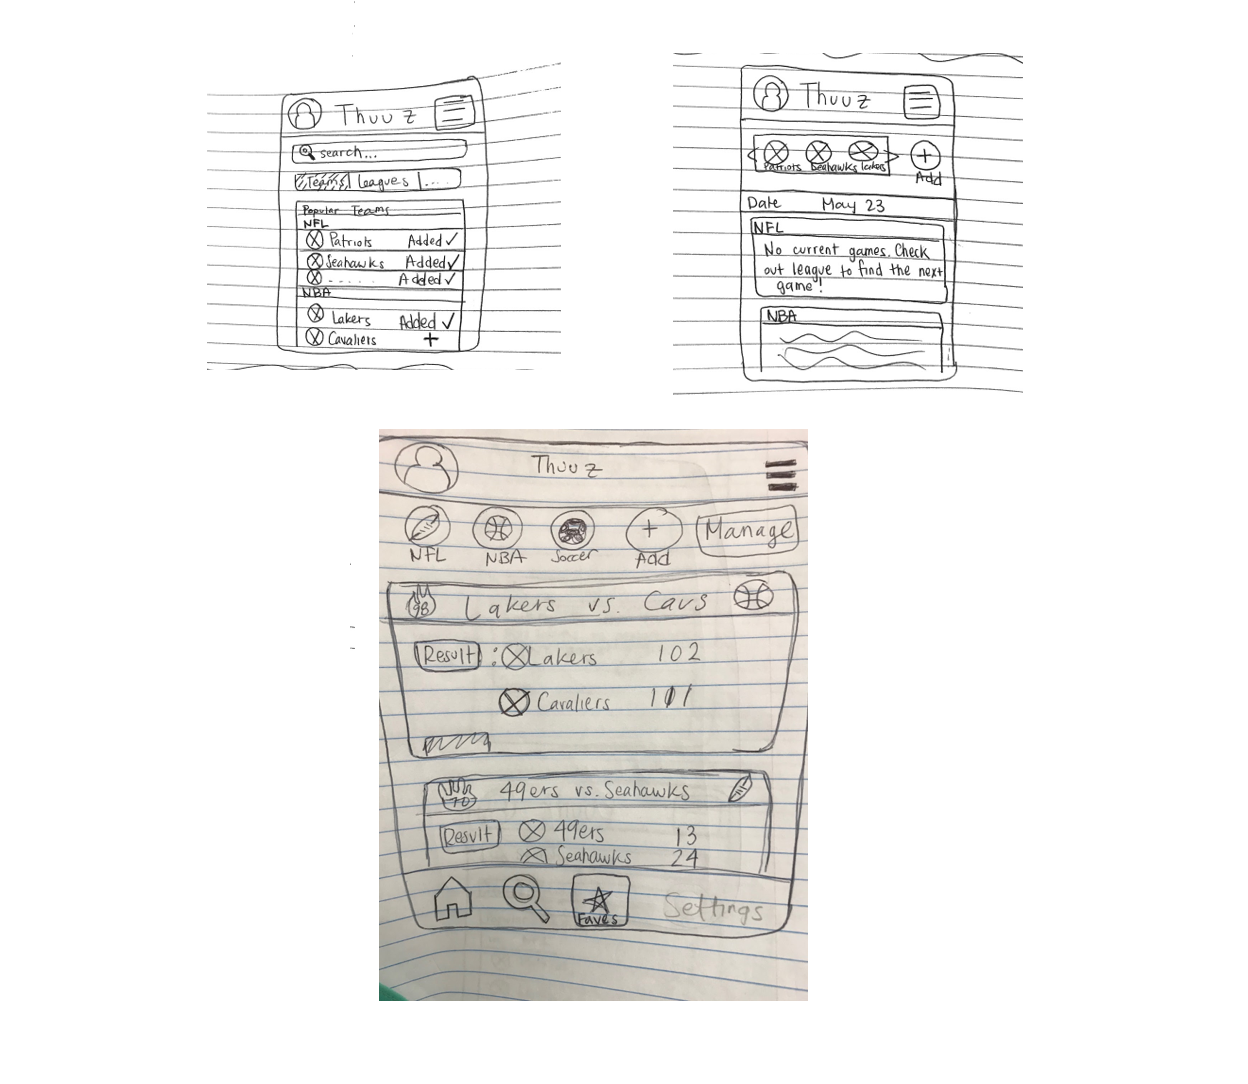 Thuuz
search...
Teams Leagues ....
Popular Teams
NFL
Patriots Added
Seahawks Added
..... Added
NBA
Lakers Added
Cavaliers +
Thuuz
Patriots Seahawks Lakers +
Add
Date May 23
NFL
No current games. Check
out league to find the next
game!
NBA
Thuuz
NFL NBA Soccer + Add Manage
98 Lakers vs. Cavs
Result : Lakers 102
Cavaliers 101
70 49ers vs. Seahawks
Result 49ers 13
Seahawks 24
Faves Settings